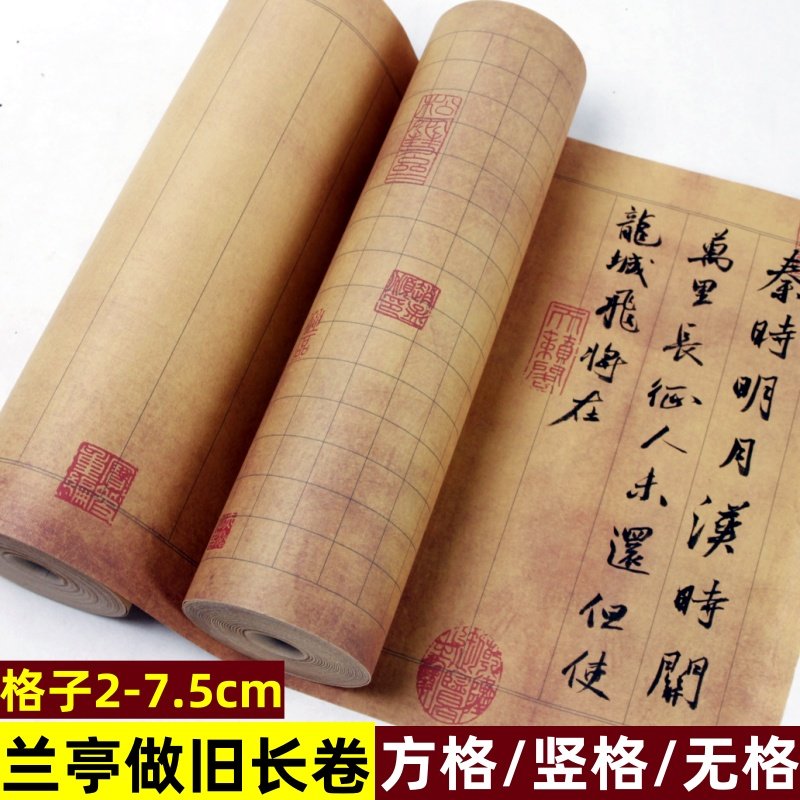 秦時明月漢時關
萬里長征人未還但使
龍城飛將在
天籟閣
格子2-7.5cm
兰亭做旧长卷
方格/竖格/无格